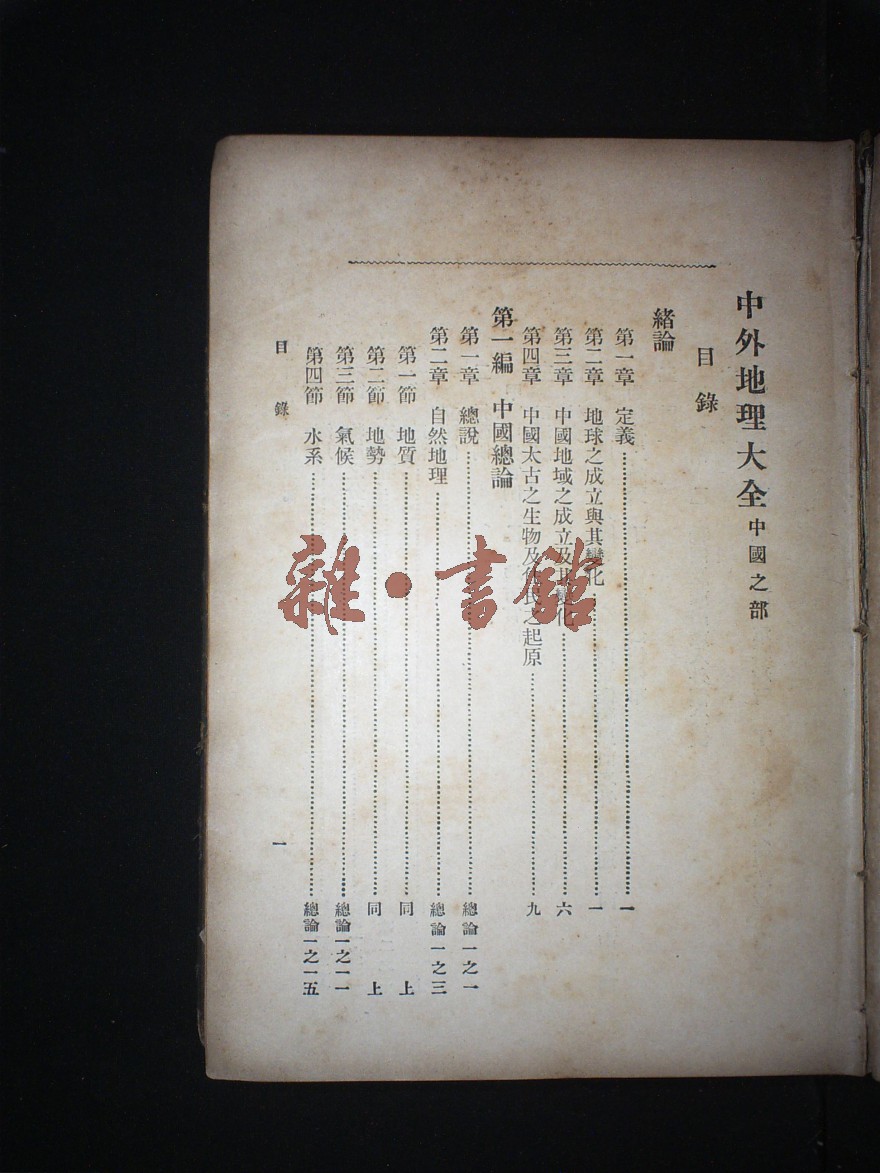 中外地理大全中國之部
目錄
緒論
第一章 定義……一
第二章 地球之成立與其變化……一
第三章 中國地域之成立及其變化……六
第四章 中國太古之生物及住民之起原……九
第一編 中國總論
第一章 總說……總論一之一
第二章 自然地理……總論一之三
第一節 地質……同上
第二節 地勢……同上
第三節 氣候……總論一之一一
第四節 水系……總論一之一五
目錄 一
雜·書館